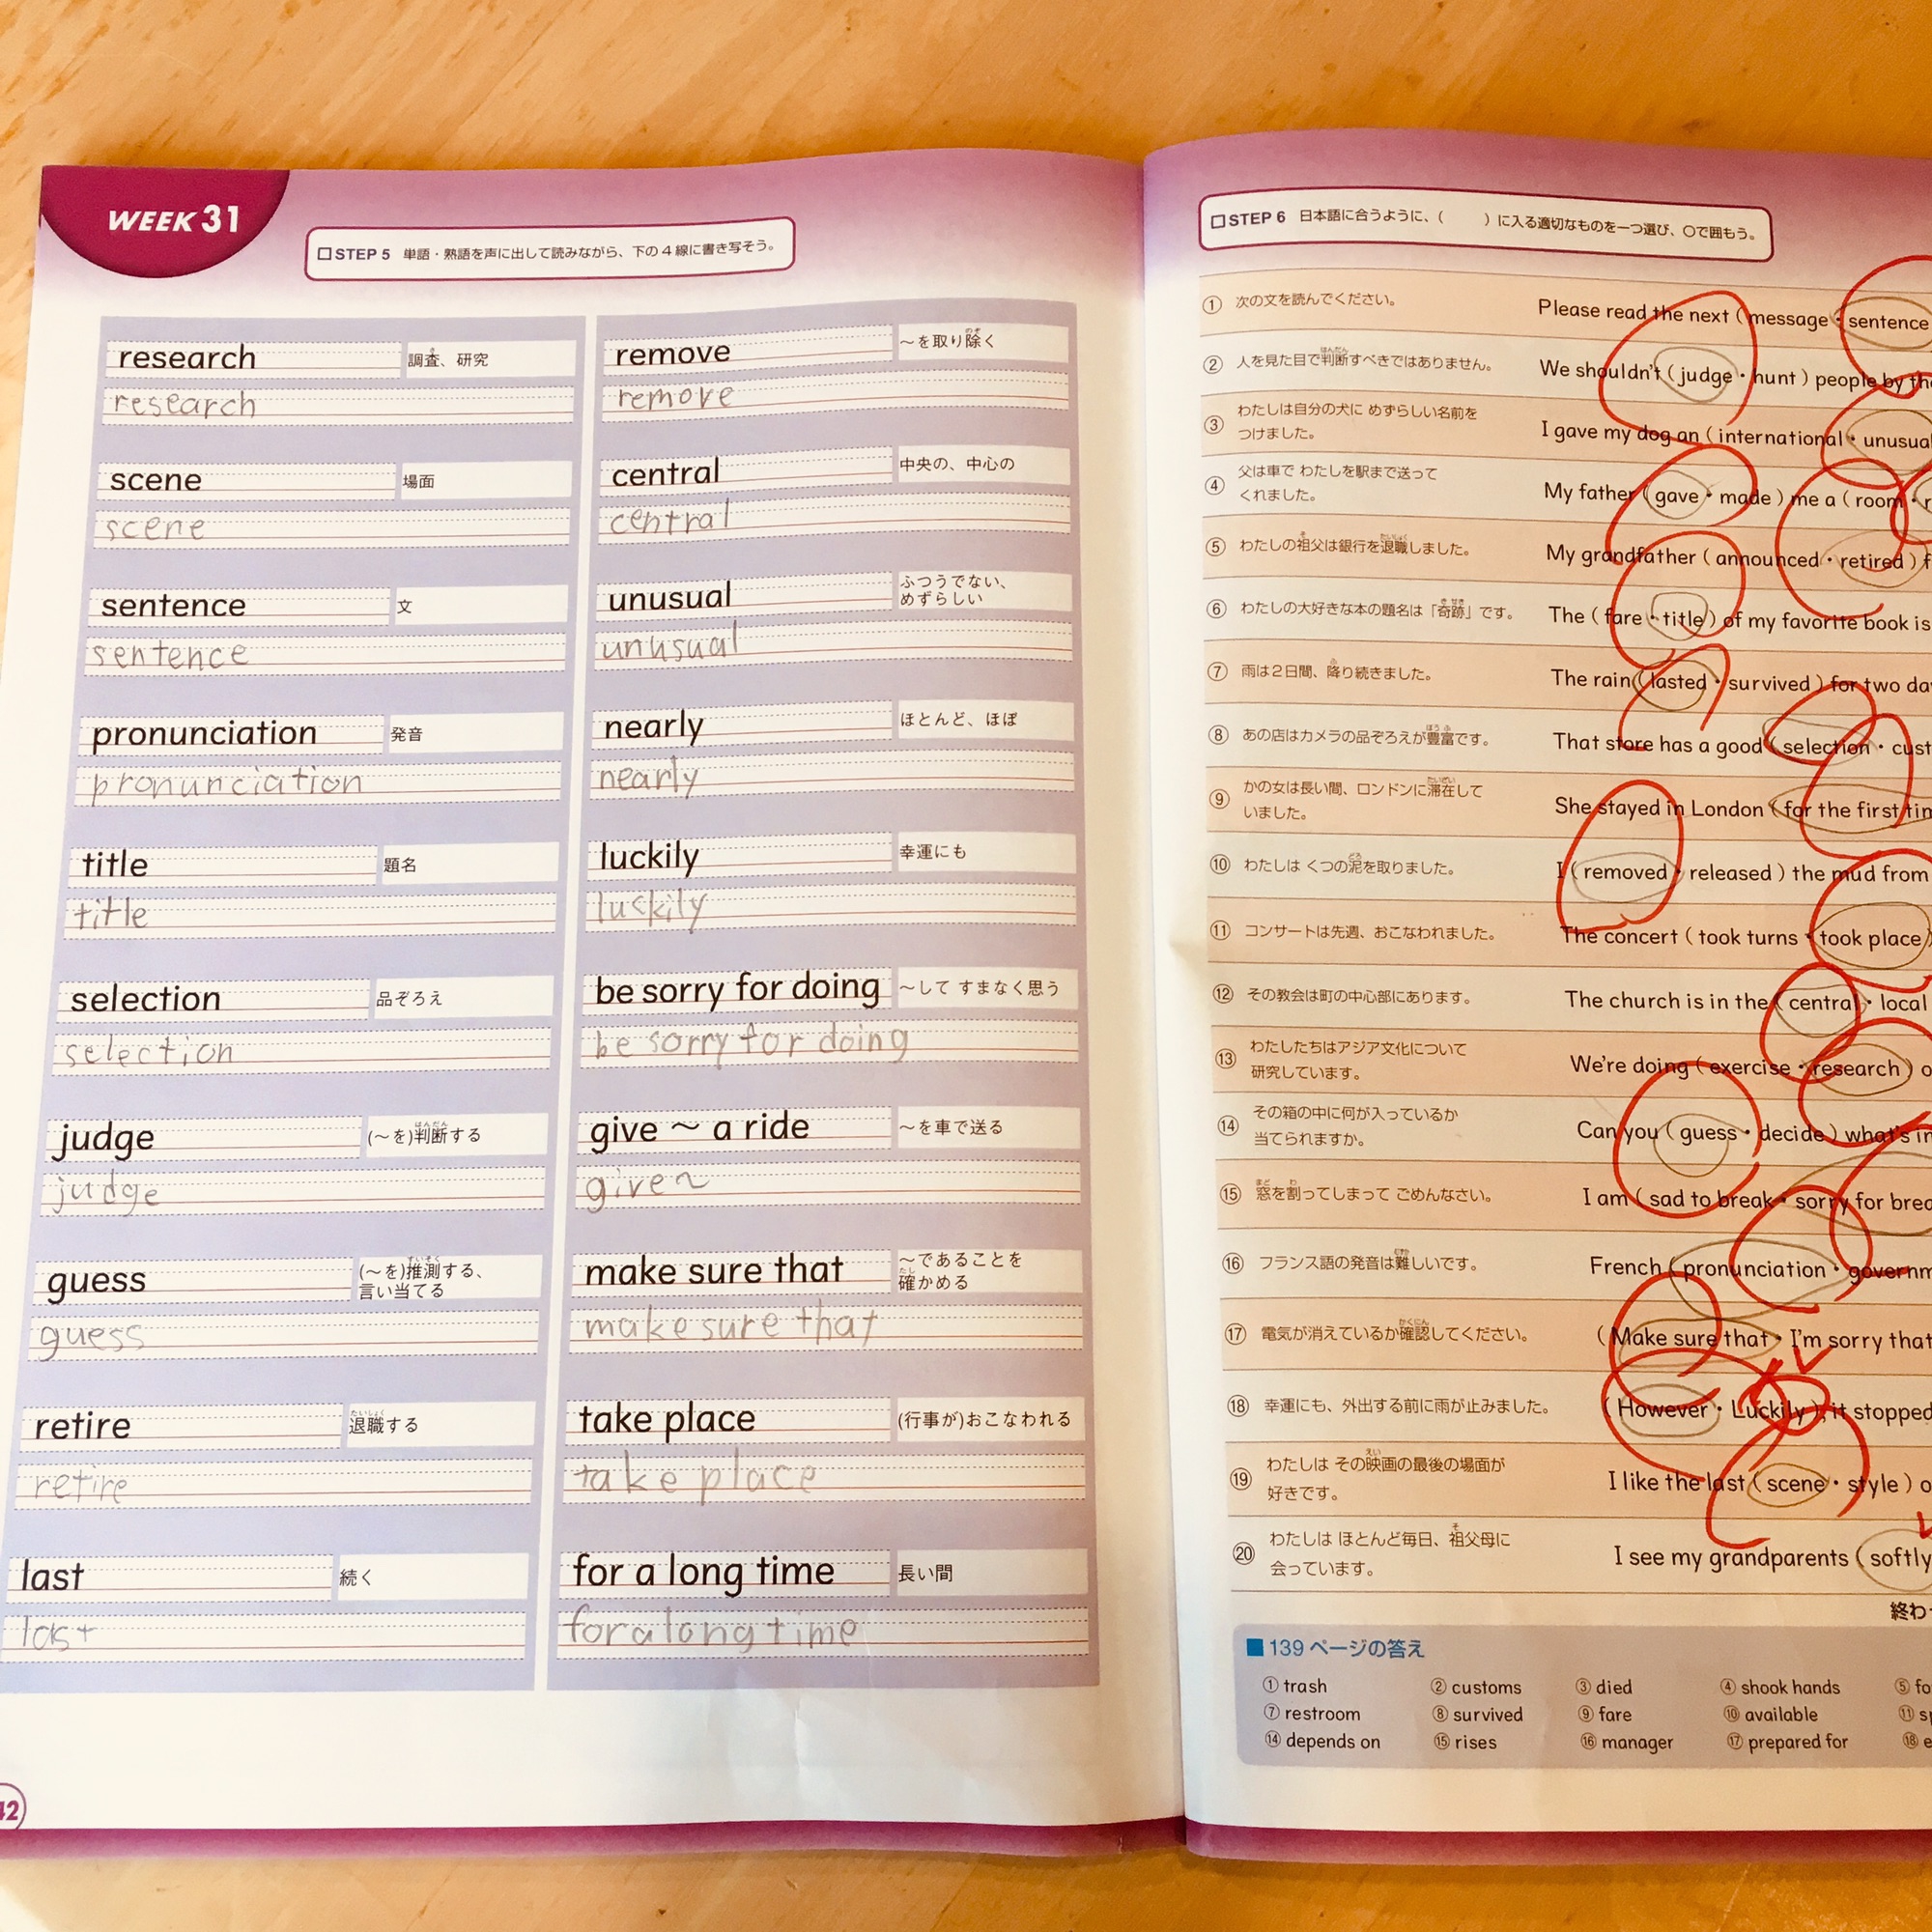 WEEK 31
STEP 5 単語・熟語を声に出して読みながら、下の4線に書き写そう。
research 調査、研究
research
scene 場面
scene
sentence 文
sentence
pronunciation 発音
pronunciation
title 題名
title
selection 品ぞろえ
selection
judge (〜を)判断する
judge
guess (〜を)推測する、
言い当てる
guess
retire 退職する
retire
last 続く
last
remove 〜を取り除く
remove
central 中央の、中心の
central
unusual ふつうでない、
めずらしい
unusual
nearly ほとんど、ほぼ
nearly
luckily 幸運にも
luckily
be sorry for doing 〜して すまなく思う
be sorry for doing
give 〜 a ride 〜を車で送る
give〜
make sure that 〜であることを
確かめる
make sure that
take place (行事が)おこなわれる
take place
for a long time 長い間
for a long time
42
STEP 6 日本語に合うように、( )に入る適切なものを一つ選び、〇で囲もう。
① 次の文を読んでください。 Please read the next ( message・sentence
② 人を見た目で判断すべきではありません。 We shouldn't ( judge・hunt ) people by the
③ わたしは自分の犬に めずらしい名前を
つけました。 I gave my dog an ( international・unusual
④ 父は車で わたしを駅まで送って
くれました。 My father ( gave・made ) me a ( room・r
⑤ わたしの祖父は銀行を退職しました。 My grandfather ( announced・retired ) f
⑥ わたしの大好きな本の題名は「奇跡」です。 The ( fare・title ) of my favorite book is
⑦ 雨は2日間、降り続きました。 The rain ( lasted・survived ) for two da
⑧ あの店はカメラの品ぞろえが豊富です。 That store has a good ( selection・cust
⑨ かの女は長い間、ロンドンに滞在して
いました。 She stayed in London ( for the first tim
⑩ わたしは くつの泥を取りました。 I ( removed・released ) the mud from
⑪ コンサートは先週、おこなわれました。 The concert ( took turns・took place )
⑫ その教会は町の中心部にあります。 The church is in the ( central・local
⑬ わたしたちはアジア文化について
研究しています。 We're doing ( exercise・research ) o
⑭ その箱の中に何が入っているか
当てられますか。 Can you ( guess・decide ) what's in
⑮ 窓を割ってしまって ごめんなさい。 I am ( sad to break・sorry for brea
⑯ フランス語の発音は難しいです。 French ( pronunciation・governm
⑰ 電気が消えているか確認してください。 ( Make sure that・I'm sorry that
⑱ 幸運にも、外出する前に雨が止みました。 ( However・Luckily ), it stopped
⑲ わたしは その映画の最後の場面が
好きです。 I like the last ( scene・style ) o
⑳ わたしは ほとんど毎日、祖父母に
会っています。 I see my grandparents ( softly
終わ
■ 139 ページの答え
① trash ② customs ③ died ④ shook hands ⑤ fo
⑦ restroom ⑧ survived ⑨ fare ⑩ available ⑪ sp
⑭ depends on ⑮ rises ⑯ manager ⑰ prepared for ⑱ e